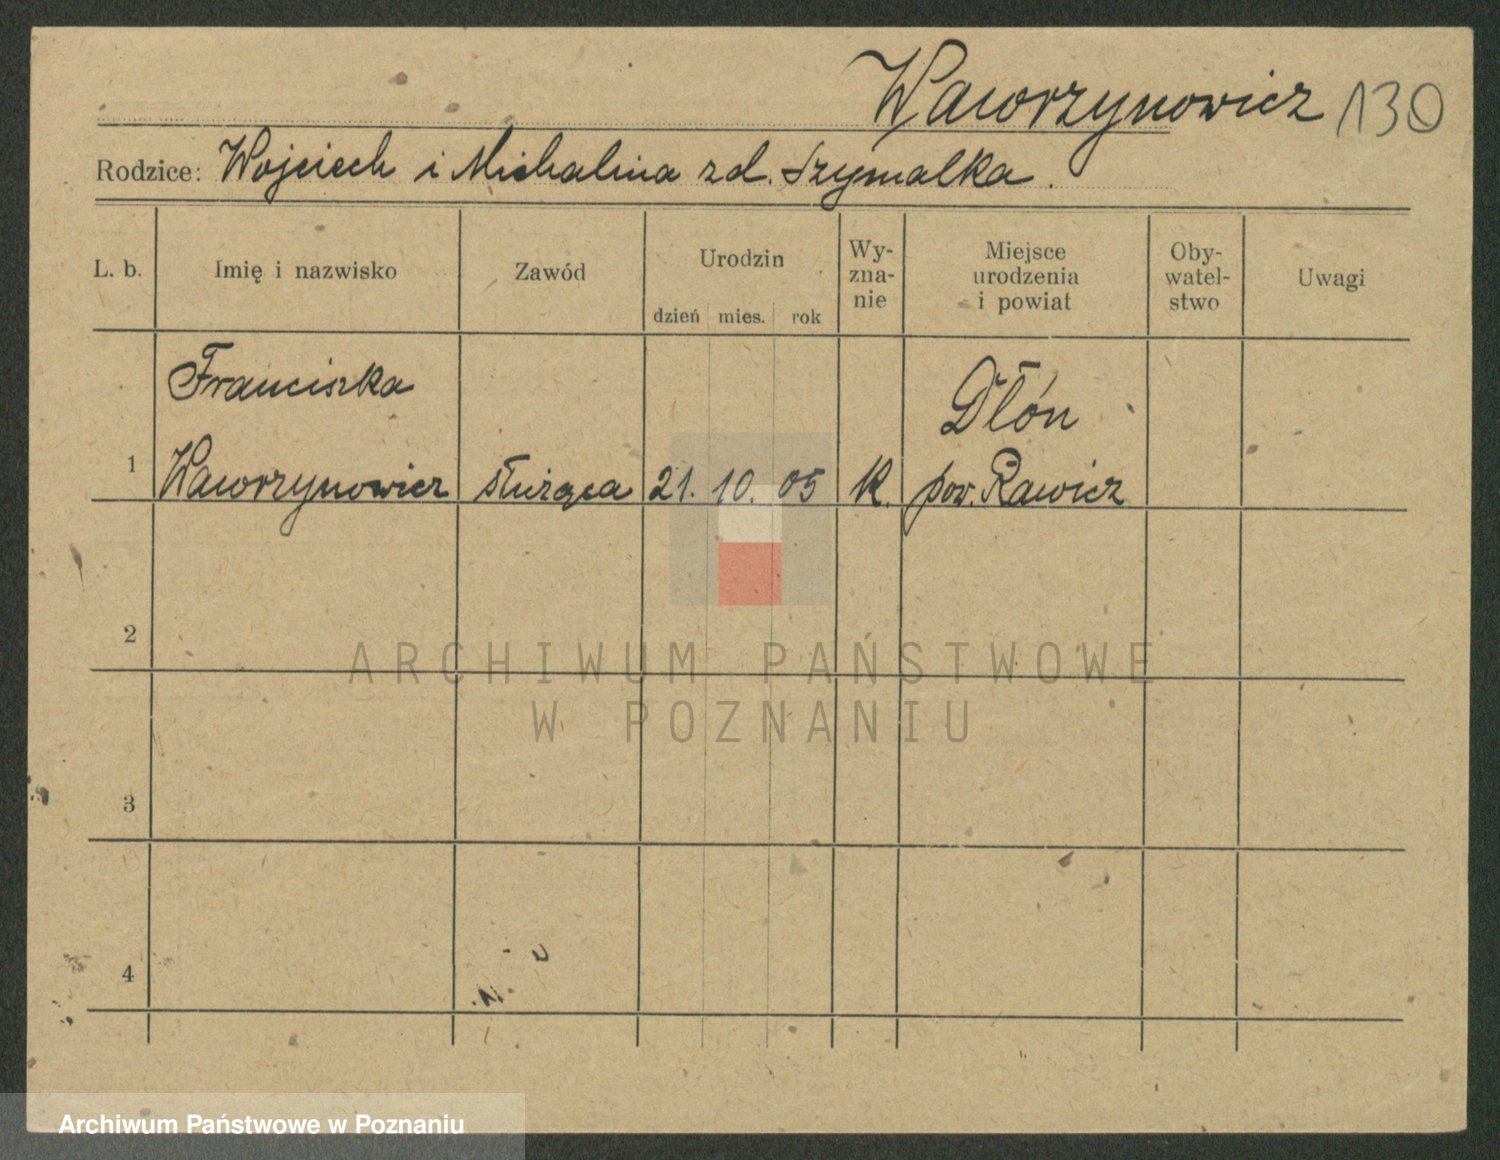 Wawrzynowicz 130
Rodzice: Wojciech i Michalina zd. Szymalka.
L. b. Imię i nazwisko Zawód Urodzin Wy-zna-nie Miejsce urodzenia i powiat Oby-watel-stwo Uwagi
dzień mies. rok
Franciszka Dłón
1 Wawrzynowicz służąca 21. 10. 05 K. pow. Rawicz
2
ARCHIWUM PAŃSTWOWE
W POZNANIU
3
4
Archiwum Państwowe w Poznaniu